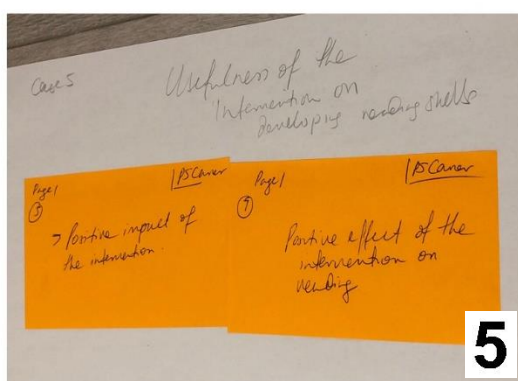 Case 5
Usefulness of the
Intervention on
developing reading skills
Page 1
③
→ Positive impact of
the intervention.
Page 1
④
Positive effect of the
intervention on
reading
5